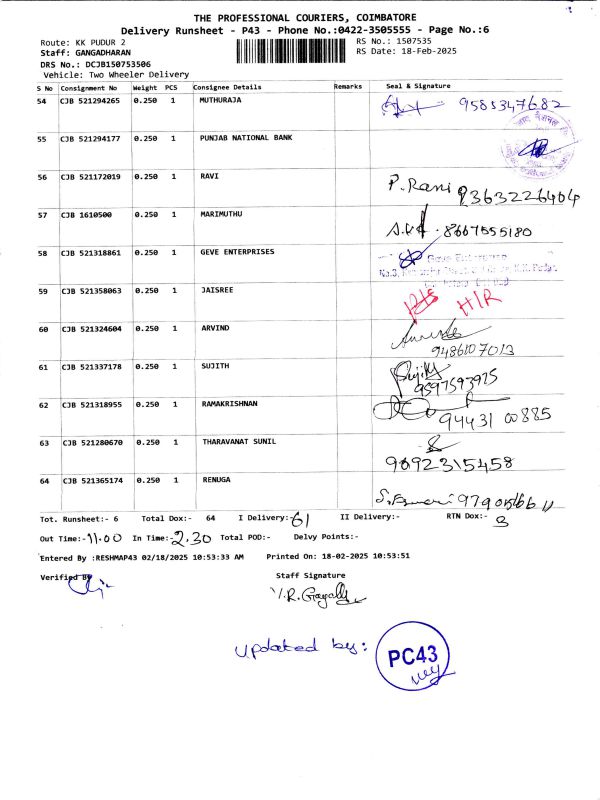 THE PROFESSIONAL COURIERS, COIMBATORE
Delivery Runsheet - P43 - Phone No.:0422-3505555 - Page No.:6
Route: KK PUDUR 2
RS No.: 1507535
Staff: GANGADHARAN
RS Date: 18-Feb-2025
DRS No.: DCJB150753506
Vehicle: Two Wheeler Delivery
S No Consignment No Weight PCS Consignee Details Remarks Seal & Signature
54 CJB 521294265 0.250 1 MUTHURAJA 9585347682
55 CJB 521294177 0.250 1 PUNJAB NATIONAL BANK
56 CJB 521172019 0.250 1 RAVI P. Ravi 9363226404
57 CJB 1610500 0.250 1 MARIMUTHU 8667555180
58 CJB 521318861 0.250 1 GEVE ENTERPRISES Geve Enterprises
59 CJB 521358063 0.250 1 JAISREE H/R
60 CJB 521324604 0.250 1 ARVIND 9486107013
61 CJB 521337178 0.250 1 SUJITH Sujith 9597593925
62 CJB 521318955 0.250 1 RAMAKRISHNAN 94431 00885
63 CJB 521280670 0.250 1 THARAVANAT SUNIL 9892315458
64 CJB 521365174 0.250 1 RENUGA
Tot. Runsheet:- 6 Total Dox:- 64 I Delivery:- 61 II Delivery:- RTN Dox:- 3
Out Time:- 11.00 In Time:- 2.30 Total POD:- Delvy Points:-
Entered By :RESHMAP43 02/18/2025 10:53:33 AM Printed On: 18-02-2025 10:53:51
Verified By Staff Signature
updated by: PC43